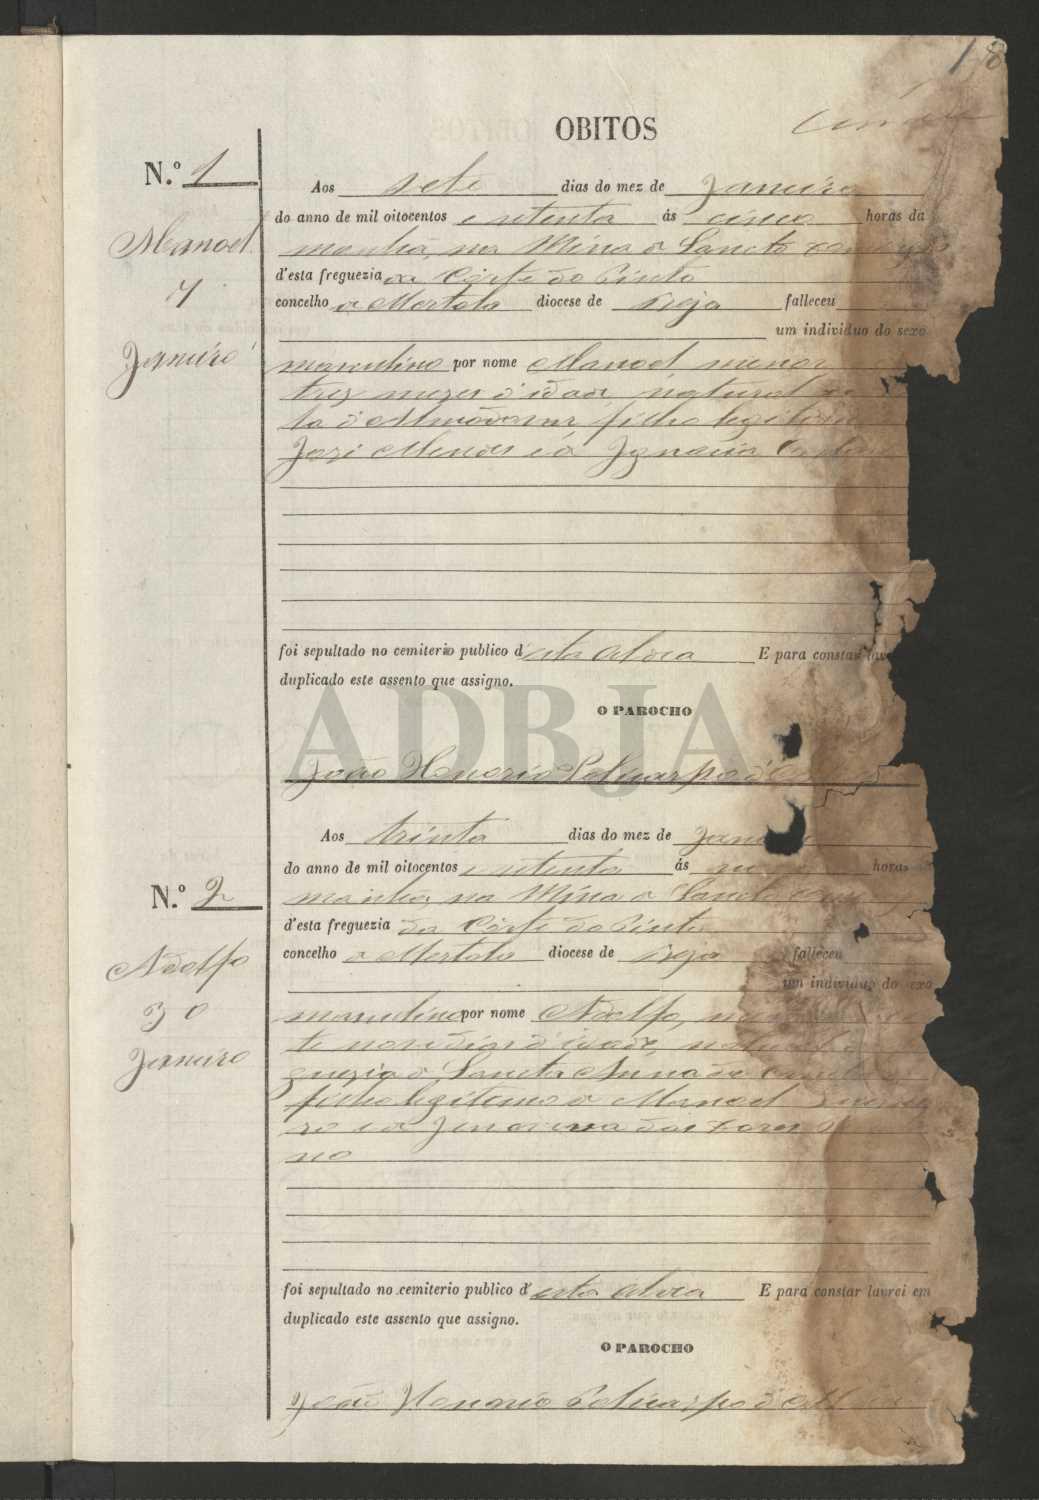 18
OBITOS
N.º 1
Manoel
7
Janeiro
Aos sete dias do mez de Janeiro
do anno de mil oitocentos e setenta ás cinco horas da
manhã, na Mina de Sancto
d'esta freguezia da Côrte do Pinto
concelho de Mertola diocese de Beja falleceu
um individuo do sexo
masculino por nome Manoel, menor
trez mezes d'idade, natural
d'Almodovar, filho legitimo
José Mendes e de Ignacia
foi sepultado no cemiterio publico d'esta Aldea E para constar lavrei
duplicado este assento que assigno.
O PAROCHO
João Honorio Policarpo d'
ADBJA
N.º 2
Adolfo
30
Janeiro
Aos trinta dias do mez de Janeiro
do anno de mil oitocentos e setenta ás horas
manhã, na Mina de Sancto
d'esta freguezia da Côrte do Pinto
concelho de Mertola diocese de Beja falleceu
um individuo do sexo
masculino por nome Adolfo,
te nove dias d'idade, natural
guezia de Sancta Anna de
filho legitimo de Manoel
ro e de das Dores
no
foi sepultado no cemiterio publico d'esta Aldea E para constar lavrei em
duplicado este assento que assigno.
O PAROCHO
João Honorio Policarpo d'